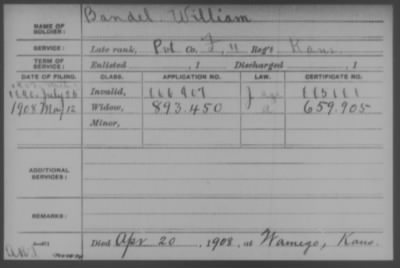 NAME OF SOLDIER: Bandel William
SERVICE: Late rank, Pvt Co. F, 11 Reg't Kans.
TERM OF SERVICE: Enlisted , 1 Discharged , 1
DATE OF FILING. CLASS. APPLICATION NO. LAW. CERTIFICATE NO.
July Invalid,
1908 May 12 Widow, 893.450 a 659.905
Minor,
ADDITIONAL SERVICES:
REMARKS:
Died Apr 20, 1908, at Wamego, Kans.